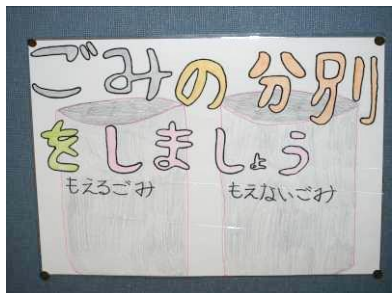 ごみの分別
をしましょう
もえるごみ
もえないごみ